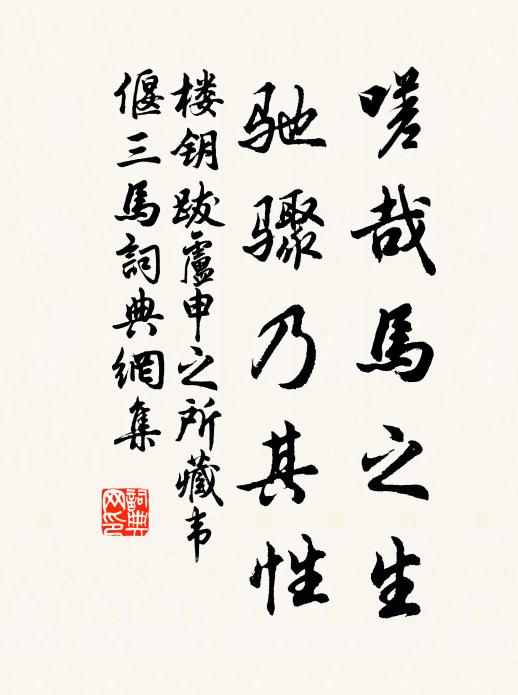 嗟哉馬之生
驰骤乃其性
楼钥跋盧申之所藏韦
偃三馬詞典網集
詞典
网印